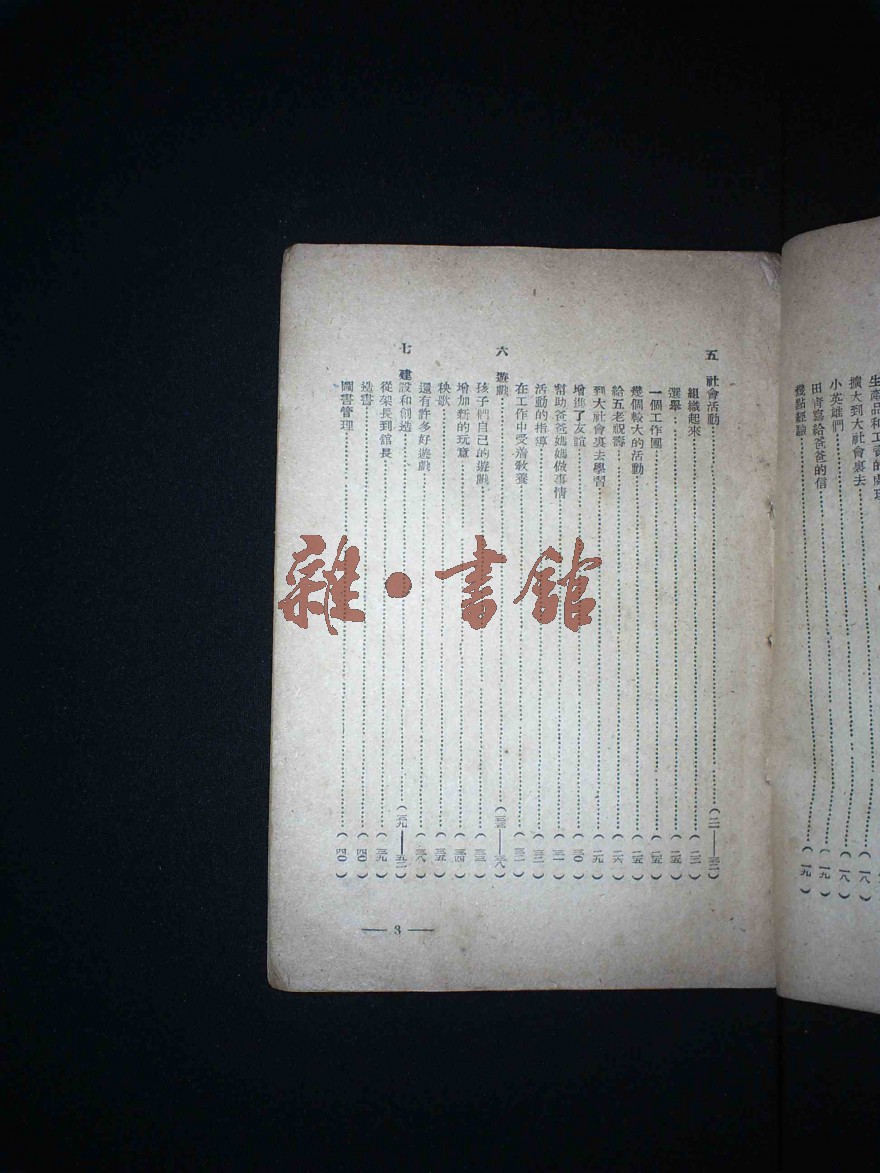 擴大到大社會裏去……(一八)
小英雄們……(一八)
田青寫給爸爸的信……(一九)
幾點經驗……(一九)
五 社會活動……
組織起來……
選舉……(二五)
一個工作團……(二五)
幾個較大的活動……(二五)
給五老祝壽……(二六)
到大社會裏去學習……(二九)
增進了友誼……(三〇)
幫助爸爸媽媽做事情……(三一)
活動的指導……
在工作中受着教養……
六 遊戲……
孩子們自己的遊戲……(三三)
增加新的玩意……(三四)
秧歌……(三五)
還有許多好遊戲……(三八)
七 建設和創造……(三九——五二)
從架長到舘長……(三九)
造書……(四〇)
圖書管理……(四〇)
— 3 —
雜·書舘